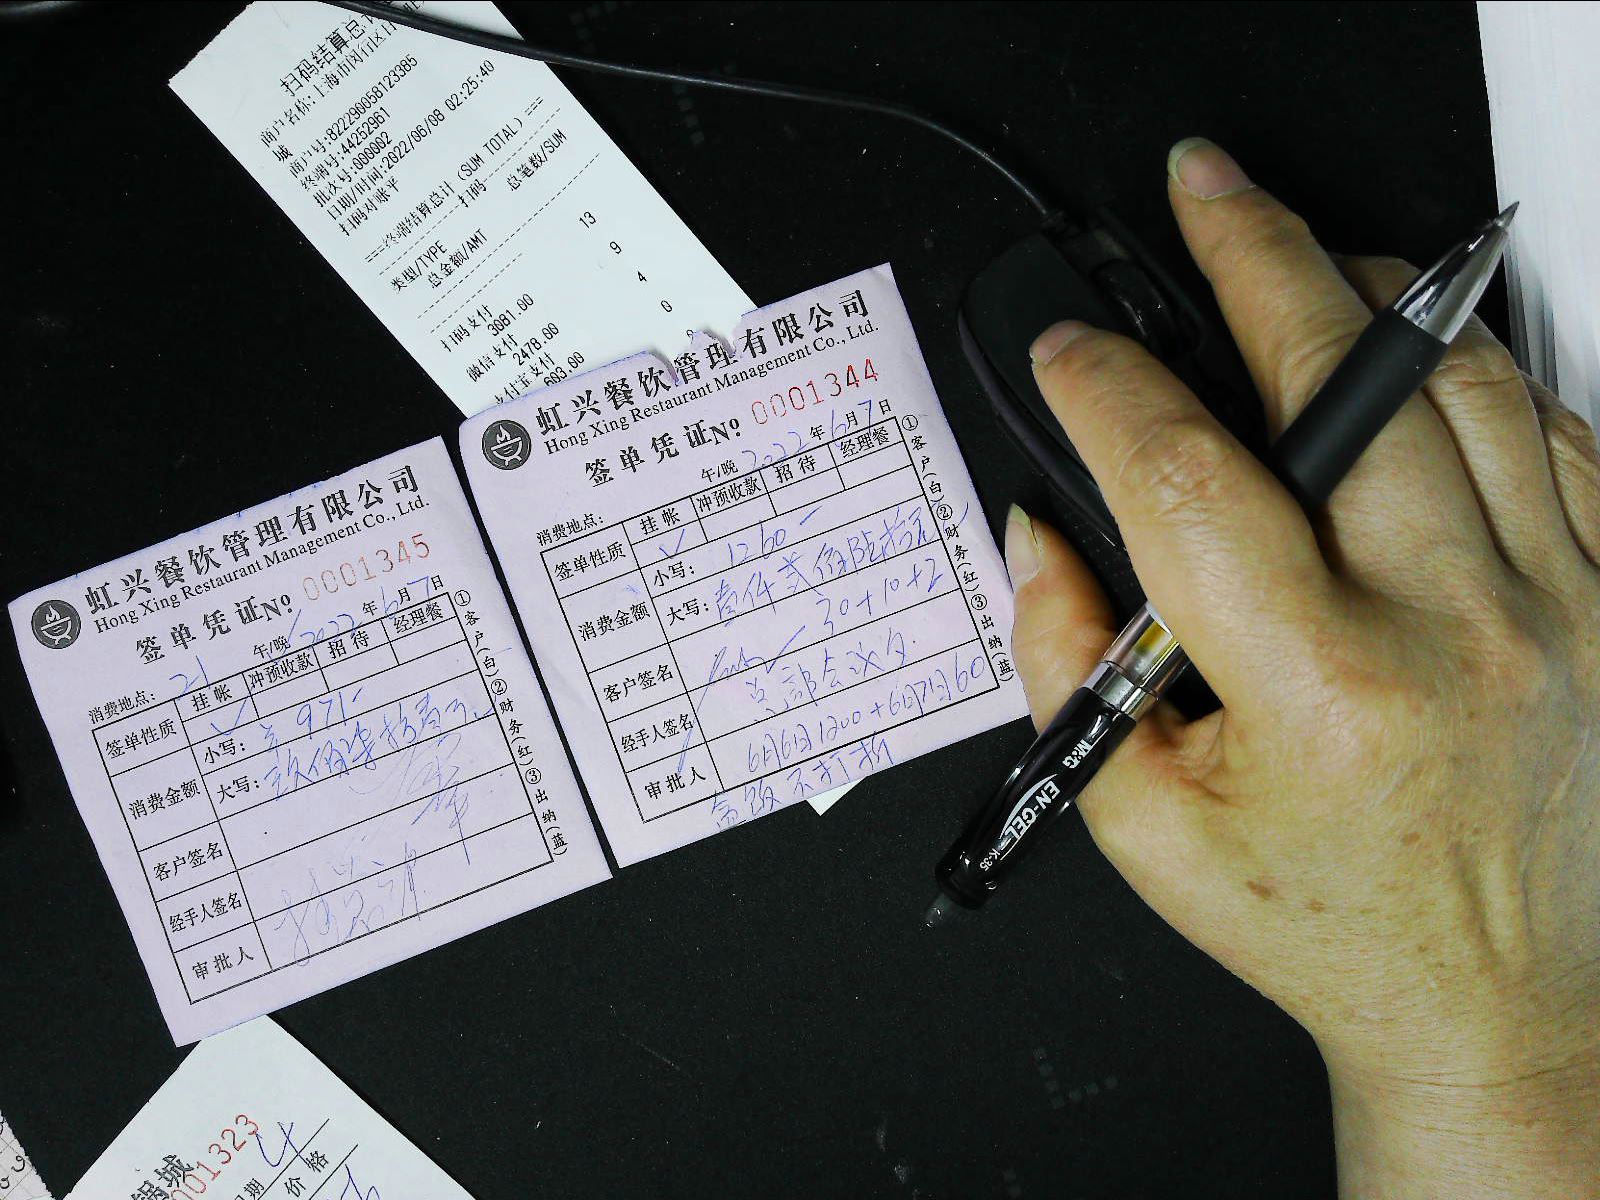 扫码结算总
商户名称:上海市闵行区
城
商户号:822290058123385
终端号:44252961
批次号:000002
日期/时间:2022/06/08 02:25:40
扫码对账平
===终端结算总计(SUM TOTAL)===
扫码
类型/TYPE 总笔数/SUM
总金额/AMT
扫码支付 13
3081.00
微信支付 9
2478.00
支付宝支付 4
603.00
0
虹兴餐饮管理有限公司
Hong Xing Restaurant Management Co., Ltd.
签单凭证№ 0001344
午/晚 2022年6月7日
消费地点:
签单性质 挂帐 冲预收款 招待 经理餐
消费金额 小写: 1260-
大写: 壹仟贰佰陆拾元
30+10+2
客户签名
经手人签名 总部会议
审批人 6月6日1200+6月7日60
不打折
①客户(白)②财务(红)③出纳(蓝)
虹兴餐饮管理有限公司
Hong Xing Restaurant Management Co., Ltd.
签单凭证№ 0001345
午/晚 2022年6月7日
消费地点: 21
签单性质 挂帐 冲预收款 招待 经理餐
消费金额 小写: 971-
大写:
客户签名
经手人签名
审批人
①客户(白)②财务(红)③出纳(蓝)
锅城
001323
日期
价格
M&G EN-GEL K-35